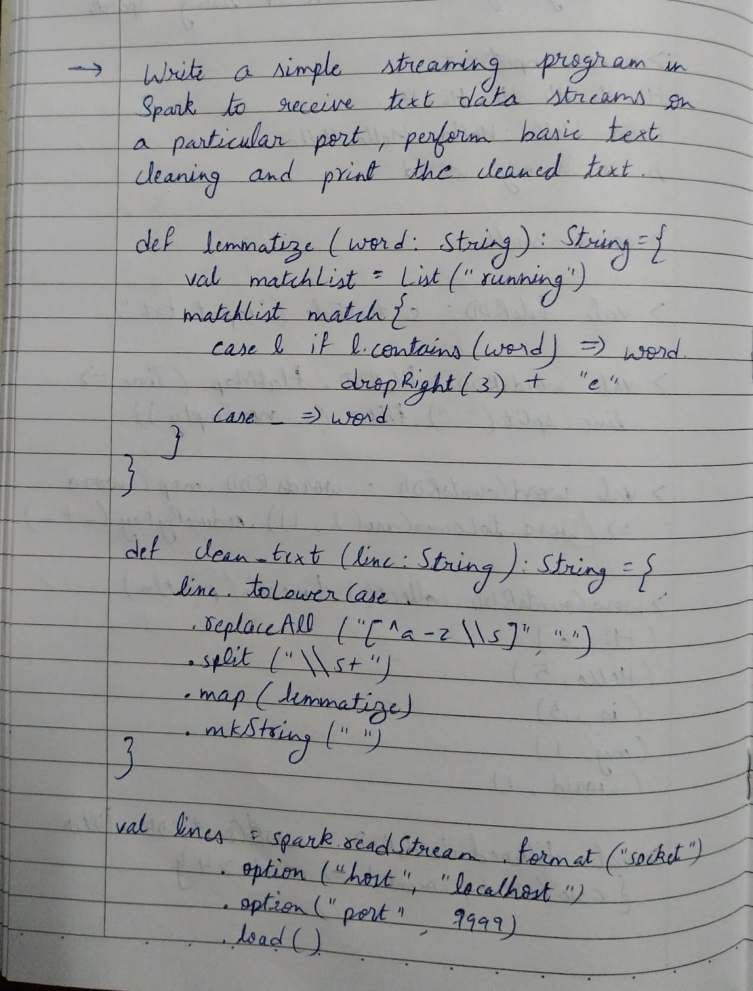 → Write a simple streaming program in
Spark to receive text data streams on
a particular port, perform basic text
cleaning and print the cleaned text.
def lemmatize (word: String): String = {
val matchList = List("running")
matchlist match {
case l if l.contains(word) => word.
dropRight(3) + "e"
case _ => word
}
}
def clean_text (line: String): String = {
line. toLowerCase.
.replaceAll ("[^a-z\\s]", "")
.split ("\\s+")
.map (lemmatize)
.mkString (" ")
}
val lines = spark.readStream .format ("socket")
.option ("host", "localhost")
.option ("port", 9999)
.load()